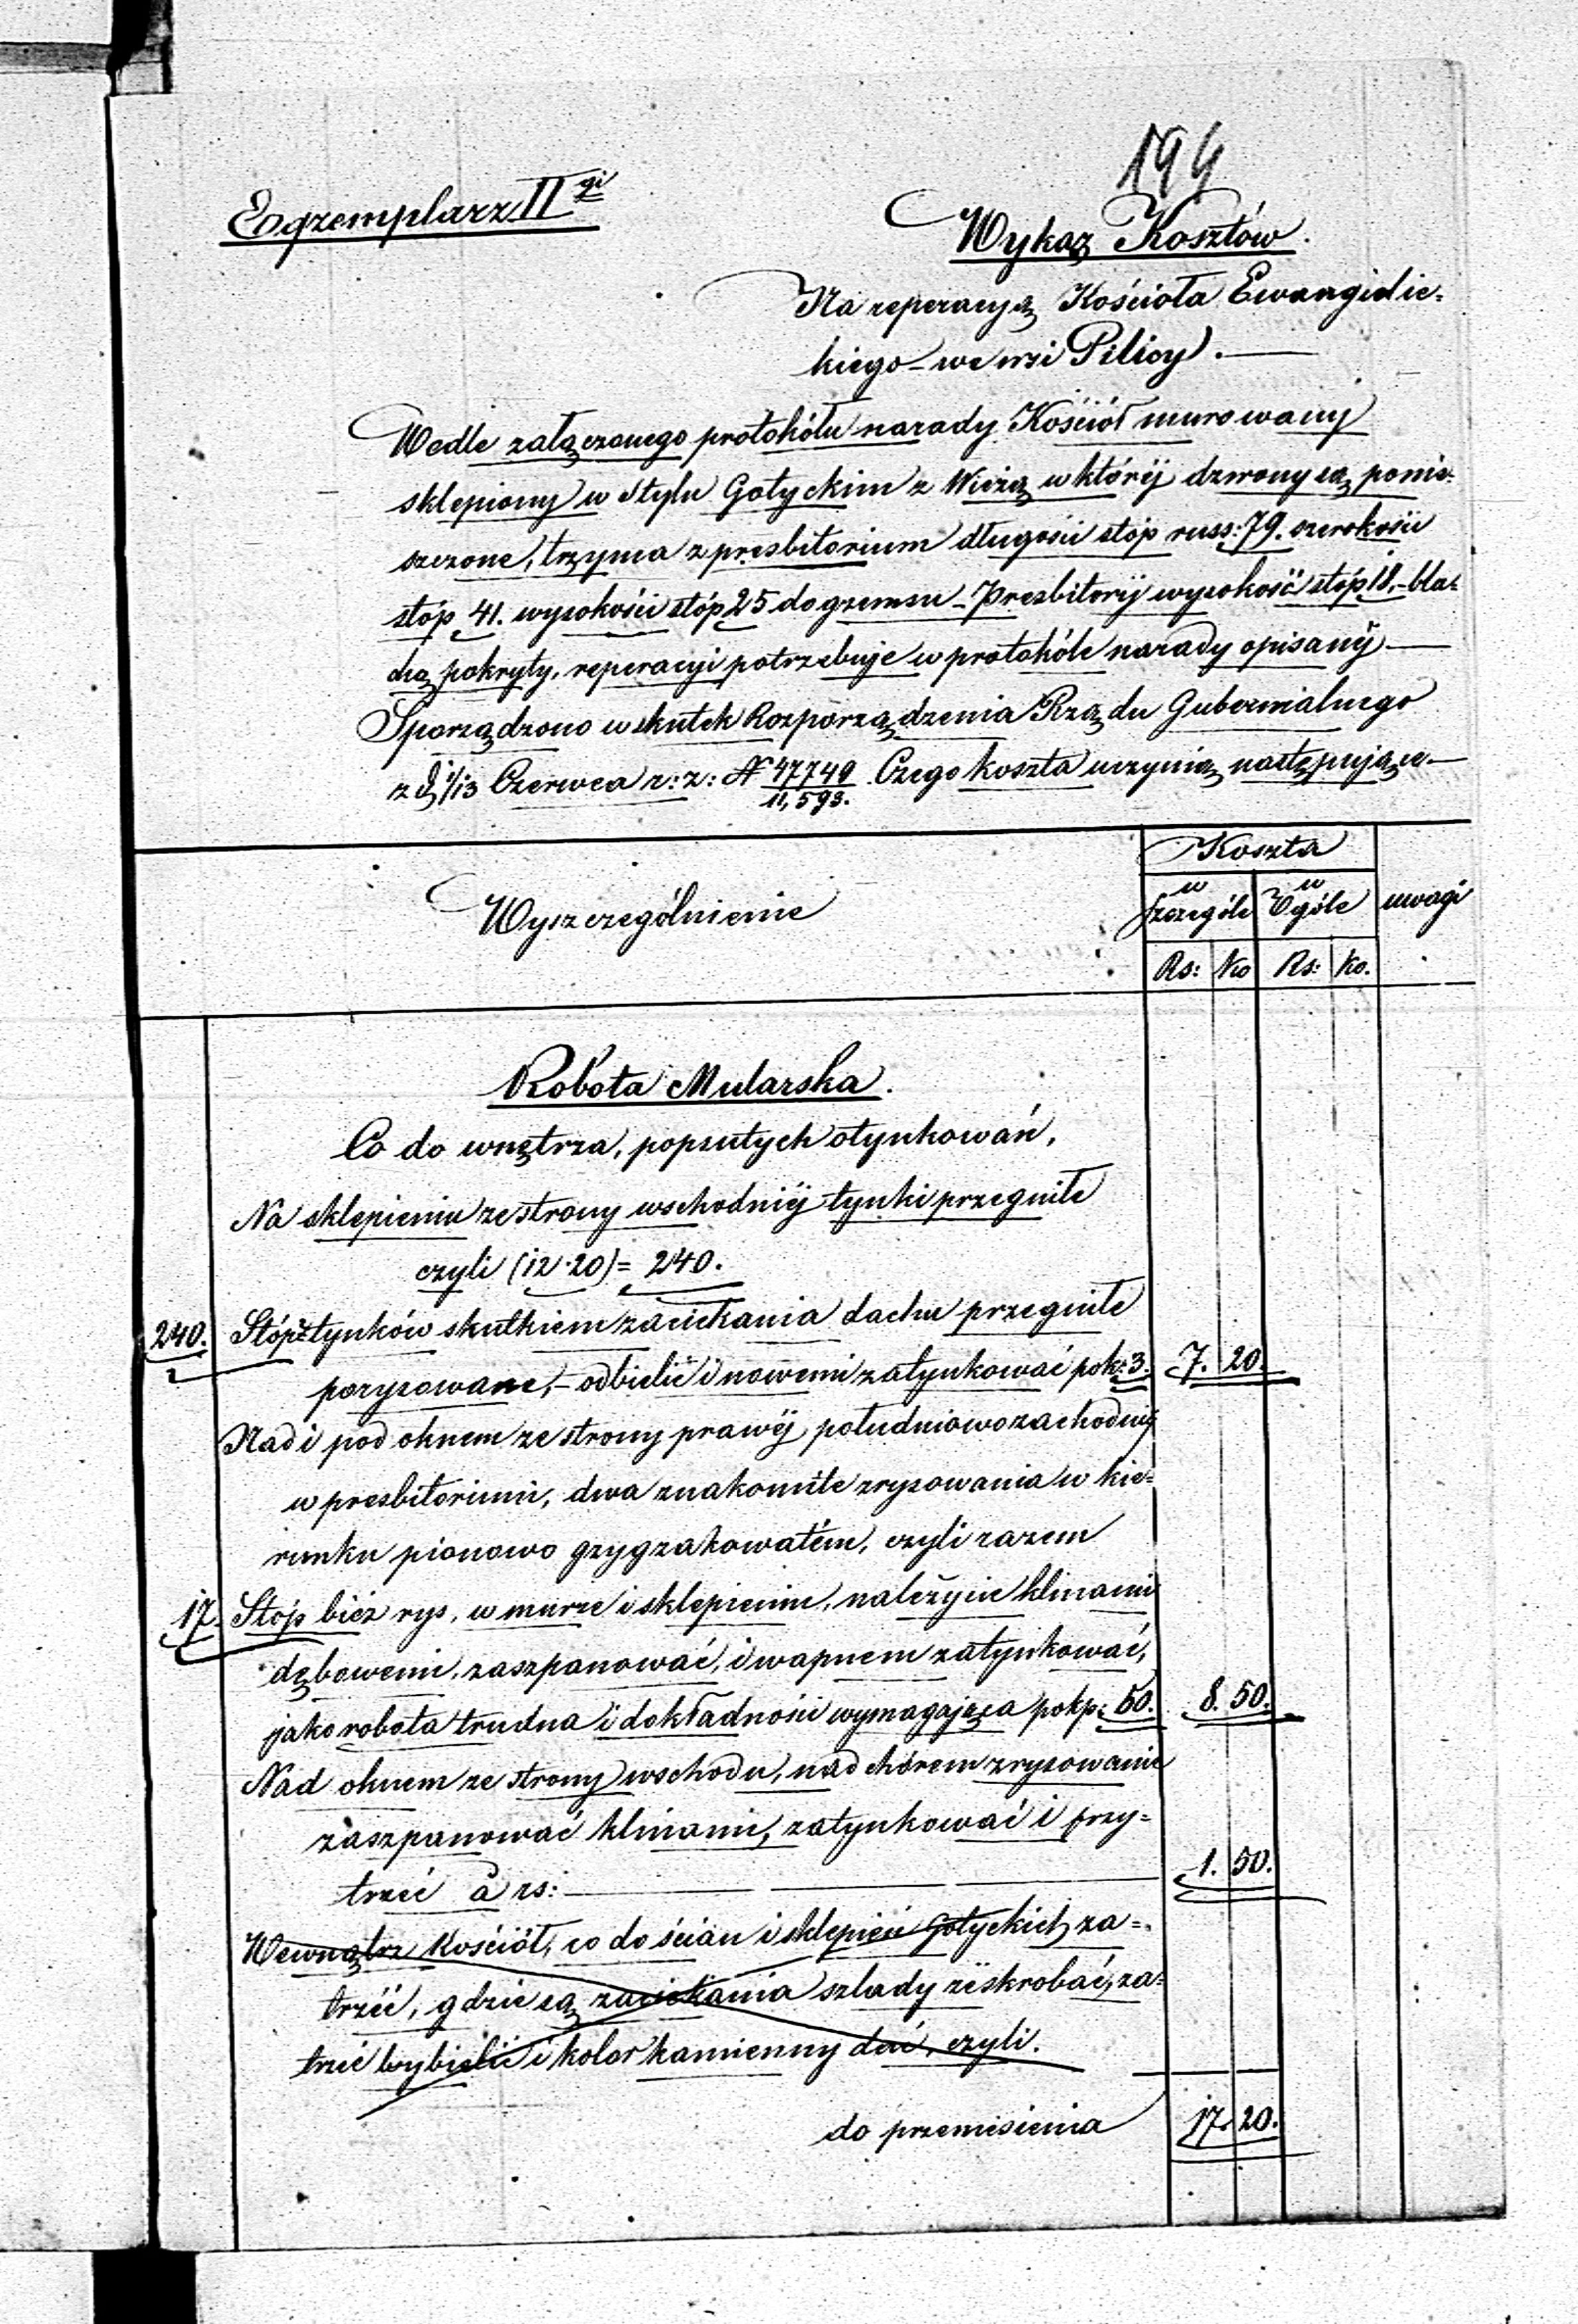 194
Exgzemplarz II gi
Wykaz Kosztów.
Na reperacyą Kościoła Ewangielic=
kiego we wsi Pilicy.
Wedle załączonego protokółu narady Kościół murowany
sklepiony w stylu Gotyckim z Wieżą w któréj dzwony są pomie=
szczone, trzyma z presbitorium długości stóp russ: 79. szerokości
stóp 41. wysokości stóp 25 do gzemsu - Presbitoryj wysokość stóp 18. - bla=
chą pokryty, reperacyi potrzebuje w protokóle narady opisanéj
Sporządzono w skutek Rozporządzenia Rządu Gubernialnego
z d 1/13 Czerwca r: z: N 47749/11,593. Czego koszta uczynią następujące.
Wyszczególnienie
Koszta
w Szczególe
w Ogóle
uwagi
Rs: Ko Rs: Ko.
Robota Mularska.
Co do wnętrza, popsutych otynkowań,
Na sklepieniu ze strony wschodniéj tynki przegniłe
czyli (12·20) = 240.
240. Stóp tynków skutkiem zaciekania dachu przegniłe
porysowane, - odbielić i nowemi zatynkować po k: 3. 7. 20.
Nad i pod oknem ze strony prawéj południowo zachodniéj
w presbitorium, dwa znakomite zrysowania w kie=
runku pionowo gzygzakowatém, czyli razem
17. Stóp bież rys, w murze i sklepieniu, należycie klinami
dębowemi, zaszpanować, i wapnem zatynkować,
jako robota trudna i dokładności wymagająca po kp: 50. 8. 50.
Nad oknem ze strony wschodu, nad chórem zrysowanie
zaszpanować klinami, zatynkować i przy=
trzeć à rs: 1. 50.
Wewnątrz Kościół, co do ścian i sklepień Gotyckich, za=
trzéć, gdzie są zaciekania szlady zeskrobać, za=
trzeć wybielić i kolor kamienny dać, czyli.
do przeniesienia 17. 20.